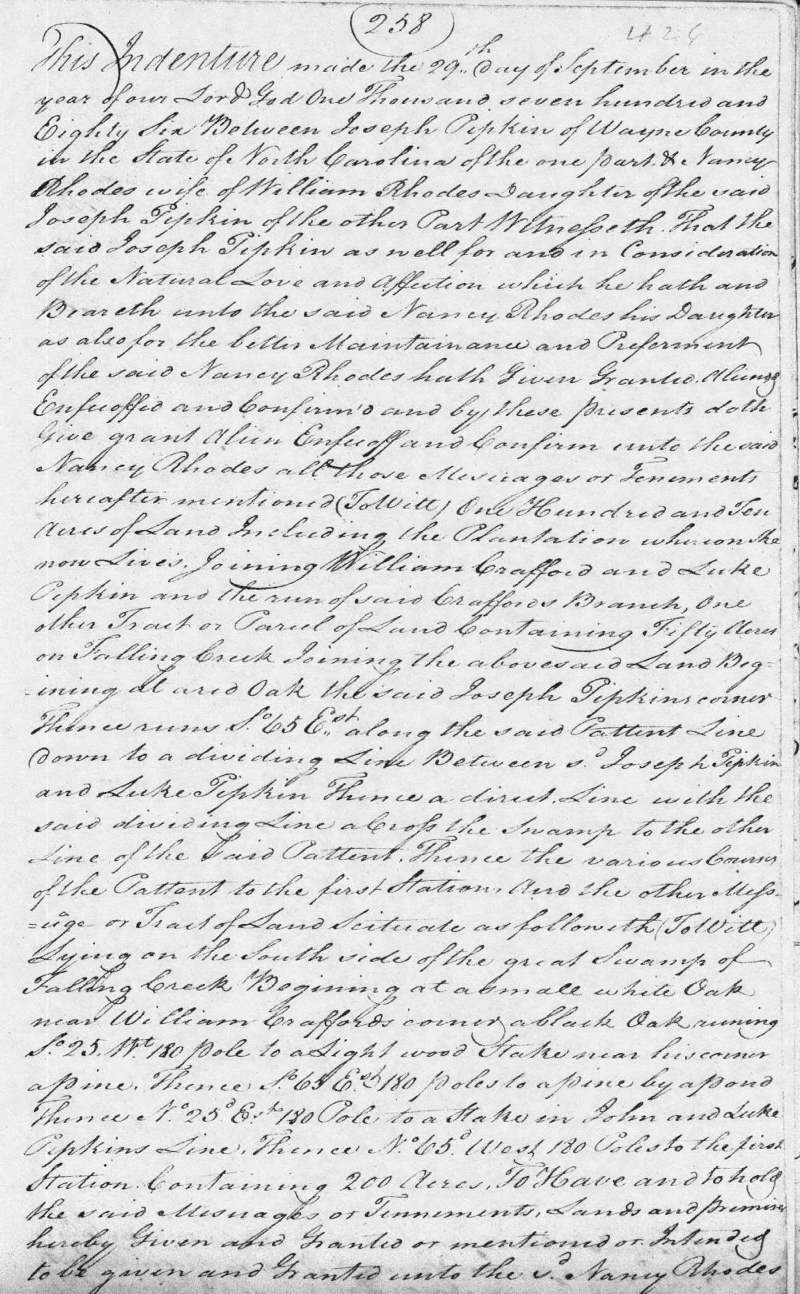 258
426
This Indenture made the 29th day of September in the
year of our Lord God One Thousand seven hundred and
Eighty Six Between Joseph Pipkin of Wayne County
in the State of North Carolina of the one part & Nancy
Rhodes wife of William Rhodes Daughter of the said
Joseph Pipkin of the other Part Witnesseth. That the
said Joseph Pipkin as well for and in Consideration
of the Natural Love and Affection which he hath and
Beareth unto the said Nancy Rhodes his Daughter
as also for the better Maintainance and Preferment
of the said Nancy Rhodes hath Given Granted, Aliened
Enfeoffed and Confirm'd and by these presents doth
Give grant Alien Enfeoff and Confirm unto the said
Nancy Rhodes all those Messuages or Tenements
hereafter mentioned (To Witt) One Hundred and Ten
Acres of Land Including the Plantation whereon she
now Lives, Joining William Crafford and Luke
Pipkin and the run of said Craffords Branch, One
other Tract or Parcel of Land Containing Fifty Acres
on Falling Creek Joining the abovesaid Land Beg-
-ining at a red Oak the said Joseph Pipkins corner
Thence runs So. 65 Est. along the said Pattent Line
down to a dividing Line Between sd. Joseph Pipkin
and Luke Pipkin Thence a direct Line with the
said dividing Line aCross the Swamp to the other
Line of the said Pattent, Thence the various Courses
of the Pattent to the first Station, And the other Mess-
-uage or Tract of Land Scituate as followeth (To Witt)
Lying on the South side of the great Swamp of
Falling Creek Begining at a small white Oak
near William Craffords corner a black Oak runing
So. 25. Wt. 180 pole to a Light wood Stake near his corner
a pine, Thence So. 65 Est. 180 poles to a pine by a pond
Thence No. 25d Est. 180 Pole to a Stake in John and Luke
Pipkins Line, Thence No. 65d West 180 Poles to the first
Station Containing 200 Acres, To Have and to hold
the said Mesuages or Tinnements, Lands and premises
hereby Given and Granted or mentioned or Intended
to be given and Granted unto the sd. Nancy Rhodes